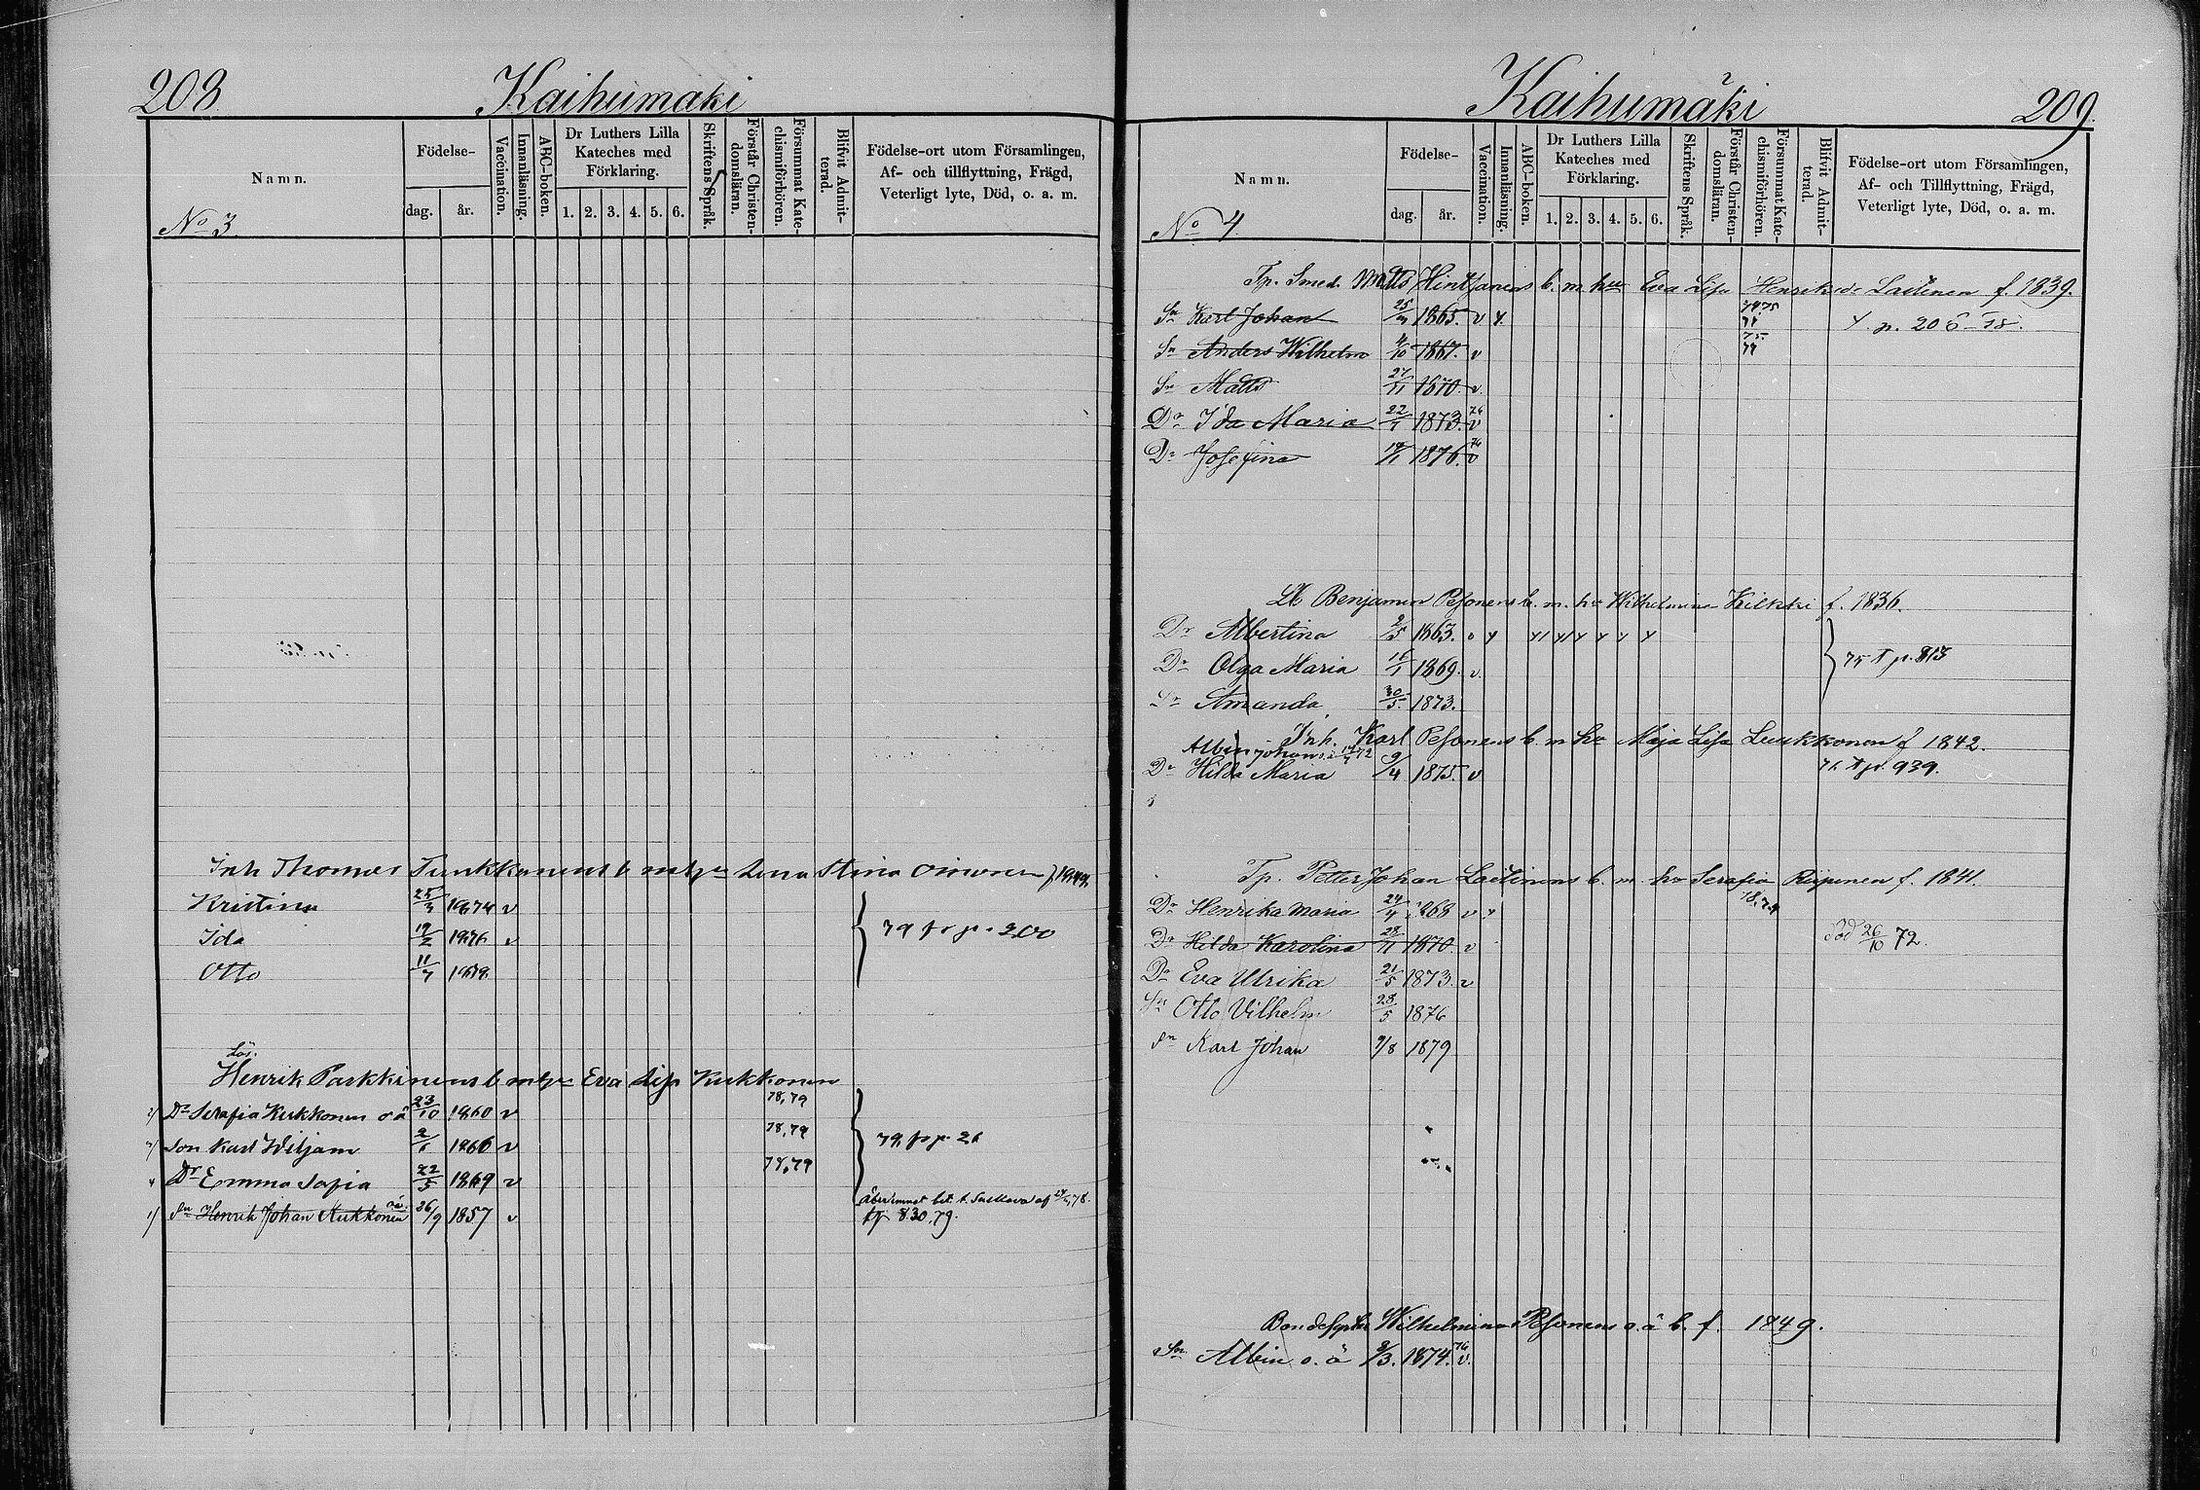 208
Kaihumäki
Namn.
No 3.
Födelse-
dag.
år.
Vaccination.
Innanläsning.
ABC-boken.
Dr Luthers Lilla
Kateches med
Förklaring.
1. 2. 3. 4. 5. 6.
Skriftens Språk.
Förstår Christen-
domsläran.
Försummat Kate-
chismiförhören.
Blifvit Admit-
terad.
Födelse-ort utom Församlingen,
Af- och tillflyttning, Frägd,
Veterligt lyte, Död, o. a. m.
Inh Thomas b m Lena Stina
Kristina 25/3 1874 v
Ida 19/2 1876 v
79 p. 200
Otto 11/7 1878
Lös.
Henrik Parkkinens b m Eva Lisa Kukkonen
2) Dr Serafia Kukkonen o ä 23/10 1860 v 78,79
3) Son Karl Wiljam 1866 v 78,79
79, p. 26
4 Dr Emma Sofia 22/5 1869 v 78,79
1) Sn Henrik Johan Kukkonen oä. 26/9 1857 v
830, 79.
Kaihumäki
209.
Namn.
No 4.
Födelse-
dag.
år.
Vaccination.
Innanläsning.
ABC-boken.
Dr Luthers Lilla
Kateches med
Förklaring.
1. 2. 3. 4. 5. 6.
Skriftens Språk.
Förstår Christen-
domsläran.
Försummat Kate-
chismiförhören.
Blifvit Admit-
terad.
Födelse-ort utom Församlingen,
Af- och Tillflyttning, Frägd,
Veterligt lyte, Död, o. a. m.
Tp. Smed. Matts Hintsanens b. m. hu Eva Lisa Laitinen f. 1839.
Sn Karl Johan 1865. v
Sn Anders Wilhelm 1867. v
Sn Matts 27/11 1870. v
Dr Ida Maria 22/1 1873. 76 v
Dr Josefina 1876. 76 v
Benjamin Pesonens b. m. hu Wilhelmina f. 1836.
Dr Albertina 2/5 1863.
Dr Olga Maria 1869. v.
75 p. 813
Dr Amanda 30/5 1873.
Inh. Karl Pesonens b. m hu Maja Lisa Luukkonen f 1842.
Albin Johans
Dr Hilda Maria 9/4 1875. v
939.
Tp. Petter Johan Laitinens b. m. hu Serafia f. 1841.
Dr Henrika Maria 24/4 1868 v
Dr Hilda Karolina 28/11 1870. v Död 26/10 72.
Dr Eva Ulrika 21/5 1873. v
Sn Otto Vilhelm 28/5 1876
Sn Karl Johan 9/8 1879
Wilhelmina Pesonens o. ä b. f. 1849.
Sn Albin o. ä 9/3. 1874. 76 v.